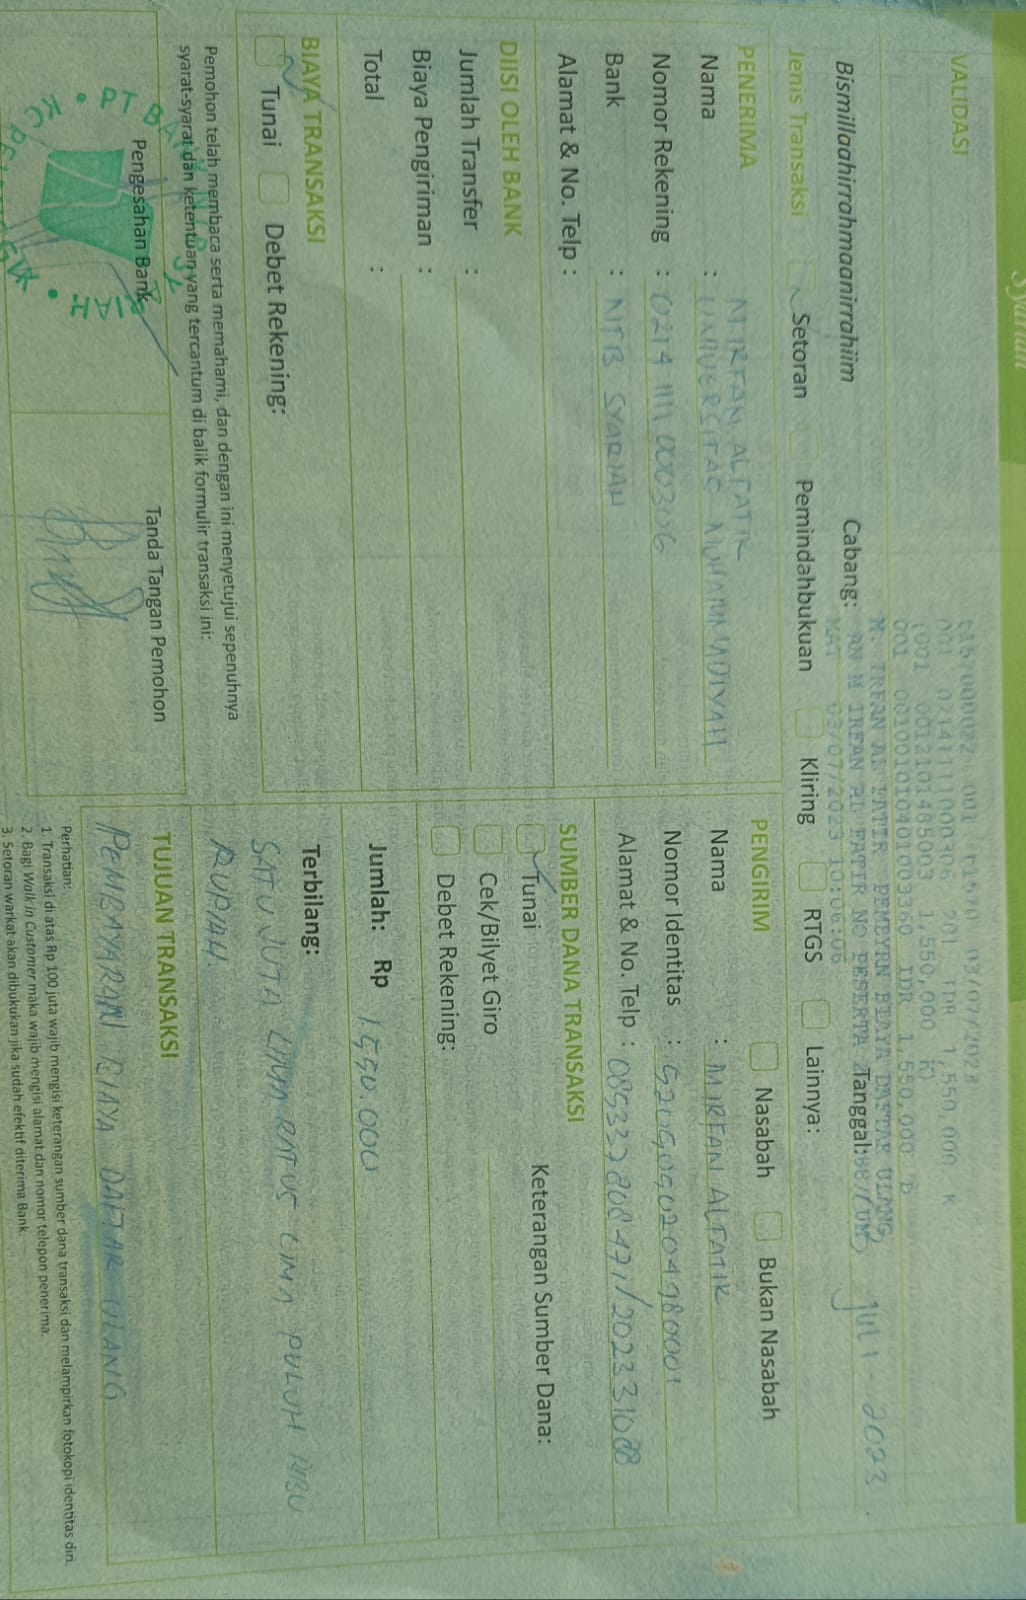 Syariah
VALIDASI
t1570000022 001 t1570 03/07/2023
001 0214111100306 201 IDR 1,550,000 K
(001 0012101485003 1,550,000 K)
001 0010010104010003360 IDR 1,550,000 D
M. IRFAN AL FATIR PEMBYRN BIAYA DAFTAR ULANG
AN M IRFAN AL FATIR NO PESERTA
MAT 03/07/2023 10:06:06
Bismillaahirrahmaanirrahiim
Cabang:
Tanggal: Juli - 2023
Jenis Transaksi Setoran Pemindahbukuan Kliring RTGS Lainnya:
PENERIMA
Nama : M IRFAN ALFATIR
UNIVERSITAS MUHAMMADIYAH
Nomor Rekening : 0214 1111 000306
Bank : NTB SYARIAH
Alamat & No. Telp :
PENGIRIM Nasabah Bukan Nasabah
Nama : M IRFAN ALFATIR
Nomor Identitas : 5205050204980001
Alamat & No. Telp : 085337808471/202331088
DIISI OLEH BANK
Jumlah Transfer :
Biaya Pengiriman :
Total :
SUMBER DANA TRANSAKSI
Tunai Keterangan Sumber Dana:
Cek/Bilyet Giro
Debet Rekening:
BIAYA TRANSAKSI
Tunai Debet Rekening:
Jumlah: Rp 1.550.000
Terbilang:
SATU JUTA LIMA RATUS LIMA PULUH RIBU
RUPIAH.
Pemohon telah membaca serta memahami, dan dengan ini menyetujui sepenuhnya
syarat-syarat dan ketentuan yang tercantum di balik formulir transaksi ini:
Pengesahan Bank
PT BANK NTB SYARIAH
Tanda Tangan Pemohon
TUJUAN TRANSAKSI
PEMBAYARAN BIAYA DAFTAR ULANG
Perhatian:
1. Transaksi di atas Rp 100 juta wajib mengisi keterangan sumber dana transaksi dan melampirkan fotokopi identitas diri.
2. Bagi Walk in Customer maka wajib mengisi alamat dan nomor telepon penerima.
3. Setoran warkat akan dibukukan jika sudah efektif diterima Bank.